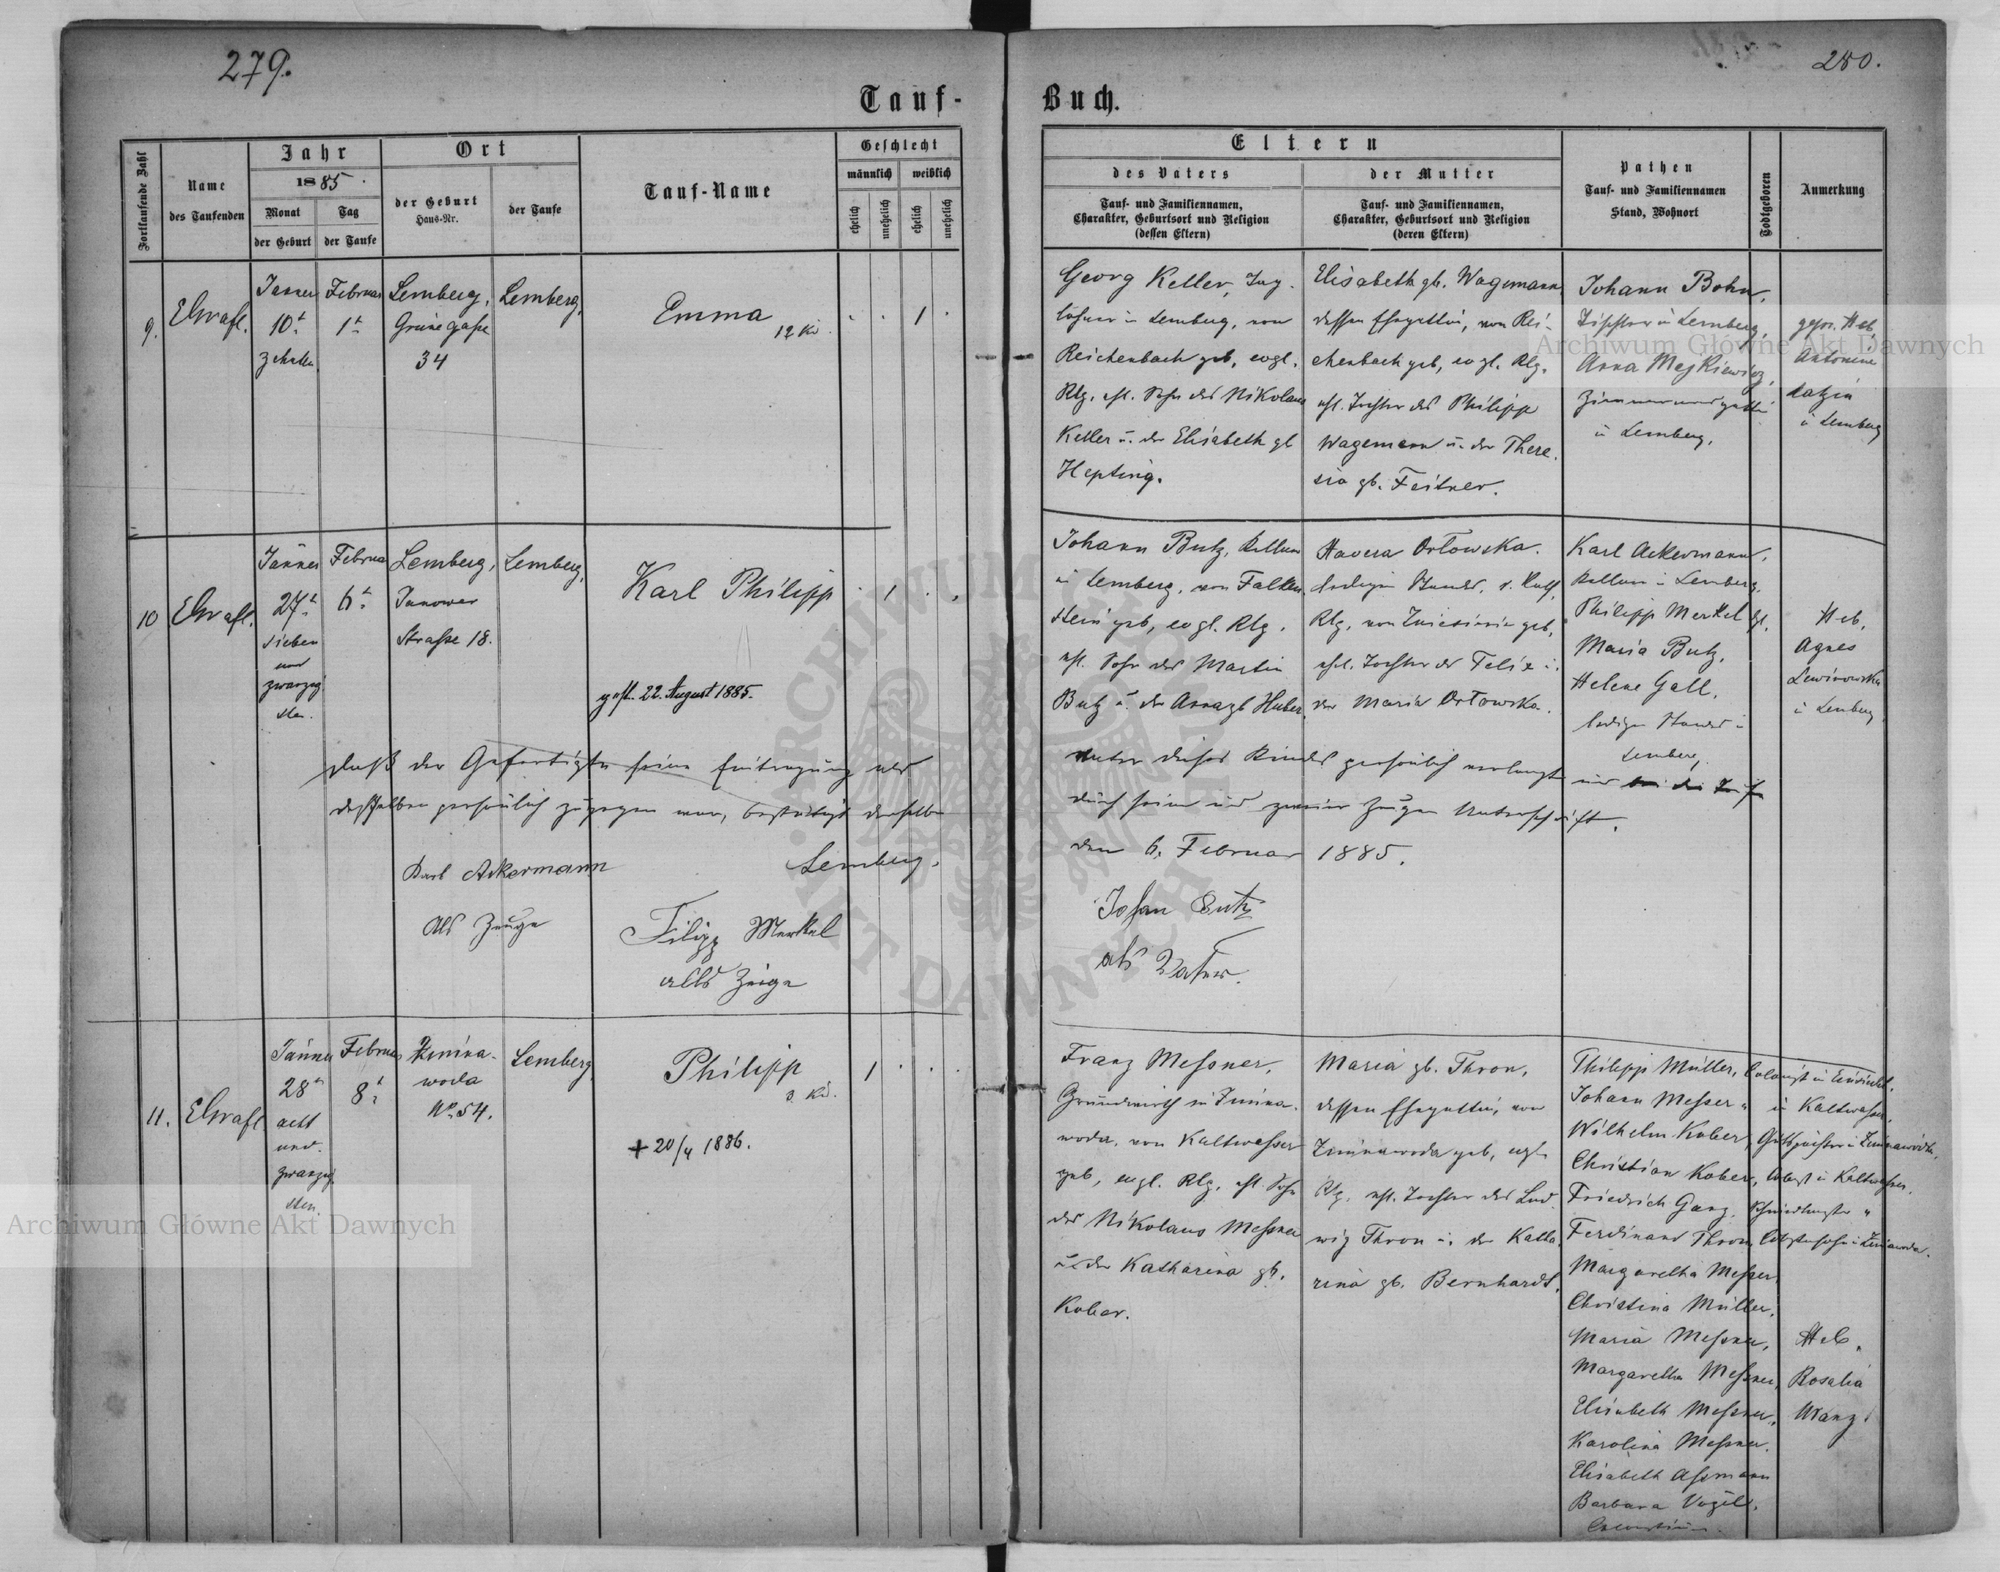 279.
280.
Tauf-
Buch.
Fortlaufende Zahl
Name
des Taufenden
Jahr
1885.
Monat
der Geburt
Tag
der Taufe
Ort
der Geburt
Haus-Nr.
der Taufe
Tauf-Name
Geschlecht
männlich
weiblich
ehelich
unehelich
ehelich
unehelich
Eltern
des Vaters
Tauf- und Familiennamen,
Charakter, Geburtsort und Religion
(dessen Eltern)
der Mutter
Tauf- und Familiennamen,
Charakter, Geburtsort und Religion
(deren Eltern)
Pathen
Tauf- und Familiennamen
Stand, Wohnort
Todtgeboren
Anmerkung
9.
Jänner
10t
zehnten
Februar
1t
Lemberg,
Grünegasse
34
Lemberg,
Emma
12 Kd.
1
Georg Keller, Tag-
löhner in Lemberg, von
Reichenbach geb, evgl.
Rlg. ehl. Sohn des Nikolaus
Keller u. der Elisabeth gb
Hepting.
Elisabeth gb. Wagemann,
dessen Ehegattin, von Rei-
chenbach geb, evgl. Rlg.
ehl. Tochter des Philipp
Wagemann u. der There-
sia gb. Feitner.
Johann Bohn,
Tischler in Lemberg,
Anna
in Lemberg.
gepr. Heb.
Antonine
in Lemberg
10
Jänner
27t
sieben
und
zwanzig
sten.
Februar
6t
Lemberg,
Janower
Strasse 18.
Lemberg,
Karl Philipp
1
gest. 22. August 1885.
Johann Butz,
in Lemberg, von Falken-
stein geb, evgl. Rlg.
ehl. Sohn des Martin
Butz u. der Anna gb Huber.
Xavera Orłowska.
ledigen Standes, r. kath.
Rlg. von geb,
ehel. Tochter des Felix u.
der Maria Orłowska.
Karl Ackermann,
in Lemberg.
Philipp Merkel
Maria Butz,
Helene Gall,
ledigen Standes in
Lemberg,
Heb.
Agnes
Lewinowska
in Lemberg
daß der Gefertigte seine Eintragung als
Vater dieses Kindes persönlich verlangt und
desselben persönlich zugegen war, bestätigt derselbe
durch seine und zweier Zeugen Unterschrift.
Lemberg,
den 6. Februar 1885.
Karl Ackermann
als Zeuge
Filipp Merkel
alls Zeige
Johan Butz
als Vater.
11.
Jänner
28t
acht
und
zwanzig
sten.
Februar
8t
Zimna-
woda
No. 54.
Lemberg,
Philipp
3. Kd.
1
+ 20/4 1886.
Franz Messner,
Grundwirth in Zimna-
woda, von Kaltwasser
geb, evgl. Rlg. ehl. Sohn
des Nikolaus Messner
u. der Katharina gb.
Kober.
Maria gb. Thron,
dessen Ehegattin, von
Zimnawoda geb, evgl.
Rlg. ehl. Tochter des Lud-
wig Thron u. der Katha-
rina gb. Bernhardt.
Philipp Müller, Colonist in Einsiedel,
Johann Messer " in Kaltwasser,
Wilhelm Kober, Gutspächter in Zimnawoda,
Christian Kober, in Kaltwasser,
Friedrich Ganz,
Ferdinand Thron, in Zimnawoda.
Margaretha Messer,
Christina Müller,
Maria Messner,
Margaretha Messner,
Elisabeth Messner,
Karolina Messner,
Elisabeth Assmann
Barbara Vogel,
Heb.
Rosalia
Wanz
Archiwum Główne Akt Dawnych
Archiwum Główne Akt Dawnych
ARCHIWUM GŁÓWNE AKT DAWNYCH